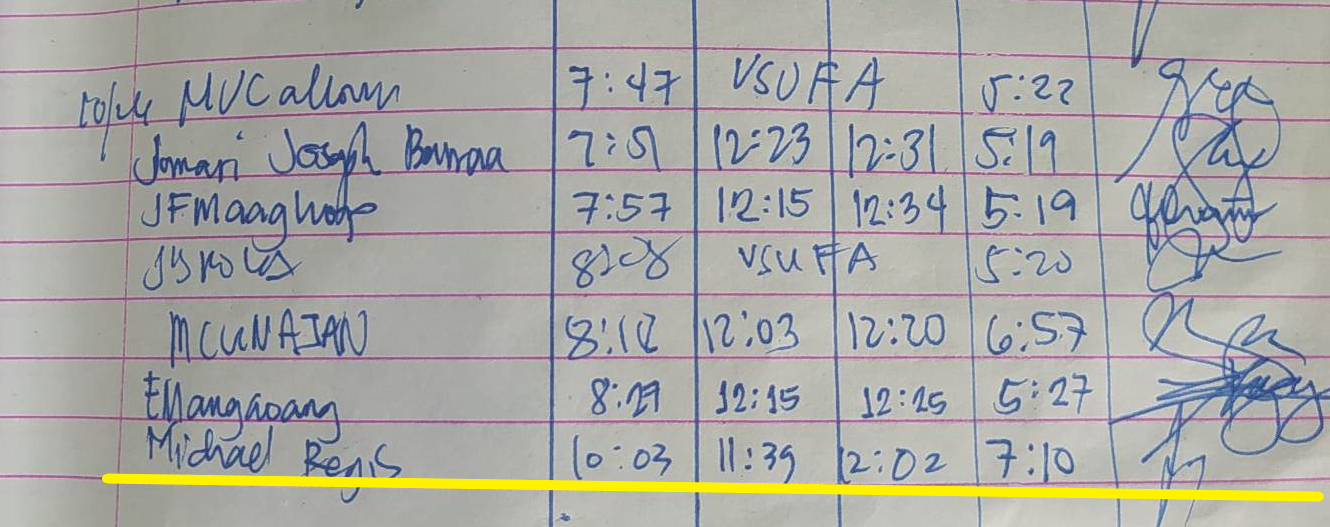 MVCallow 7:47 VSUFA 5:22
Jomari Joseph Barraa 7:51 12:23 12:31 5:19
JFMaaghop 7:57 12:15 12:34 5:19
8:08 VSUFA 5:20
MCUNAJAN 8:12 12:03 12:20 6:57
EMangaoang 8:29 12:15 12:25 5:27
Michael Regis 10:03 11:39 12:02 7:10